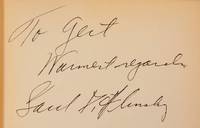 To Gert
Warmest regards
Saul D. Alinsky